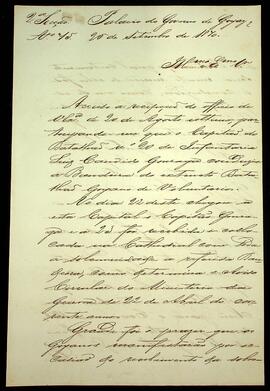 2ª Secção Palacio do Governo de Goyaz
Nº 15 20 de Setembro de 1870.
Illmo Exmo Snr
Accuso a recepção do officio de
VExª de 20 de Agosto ultimo, par-
ticipando me que o Capitão do
Batalhão nº 20 de Infantaria
Luiz Candido Gonzaga conduzia
a Bandeira do extincto Bata-
lhão Goyano de Voluntarios.
No dia 22 deste chegou a
esta Capital o Capitão Gonza-
ga e a 25 foi recebida e collo-
cada na Cathedral com toda
a solemnidade a referida Ban-
deira, como determina o aviso
Circular do Ministerio da
Guerra de 22 de Abril do cor-
rente anno.
Grande foi o prazer que os
Goyanos manifestarão por oc-
casião do recebimento da nobre